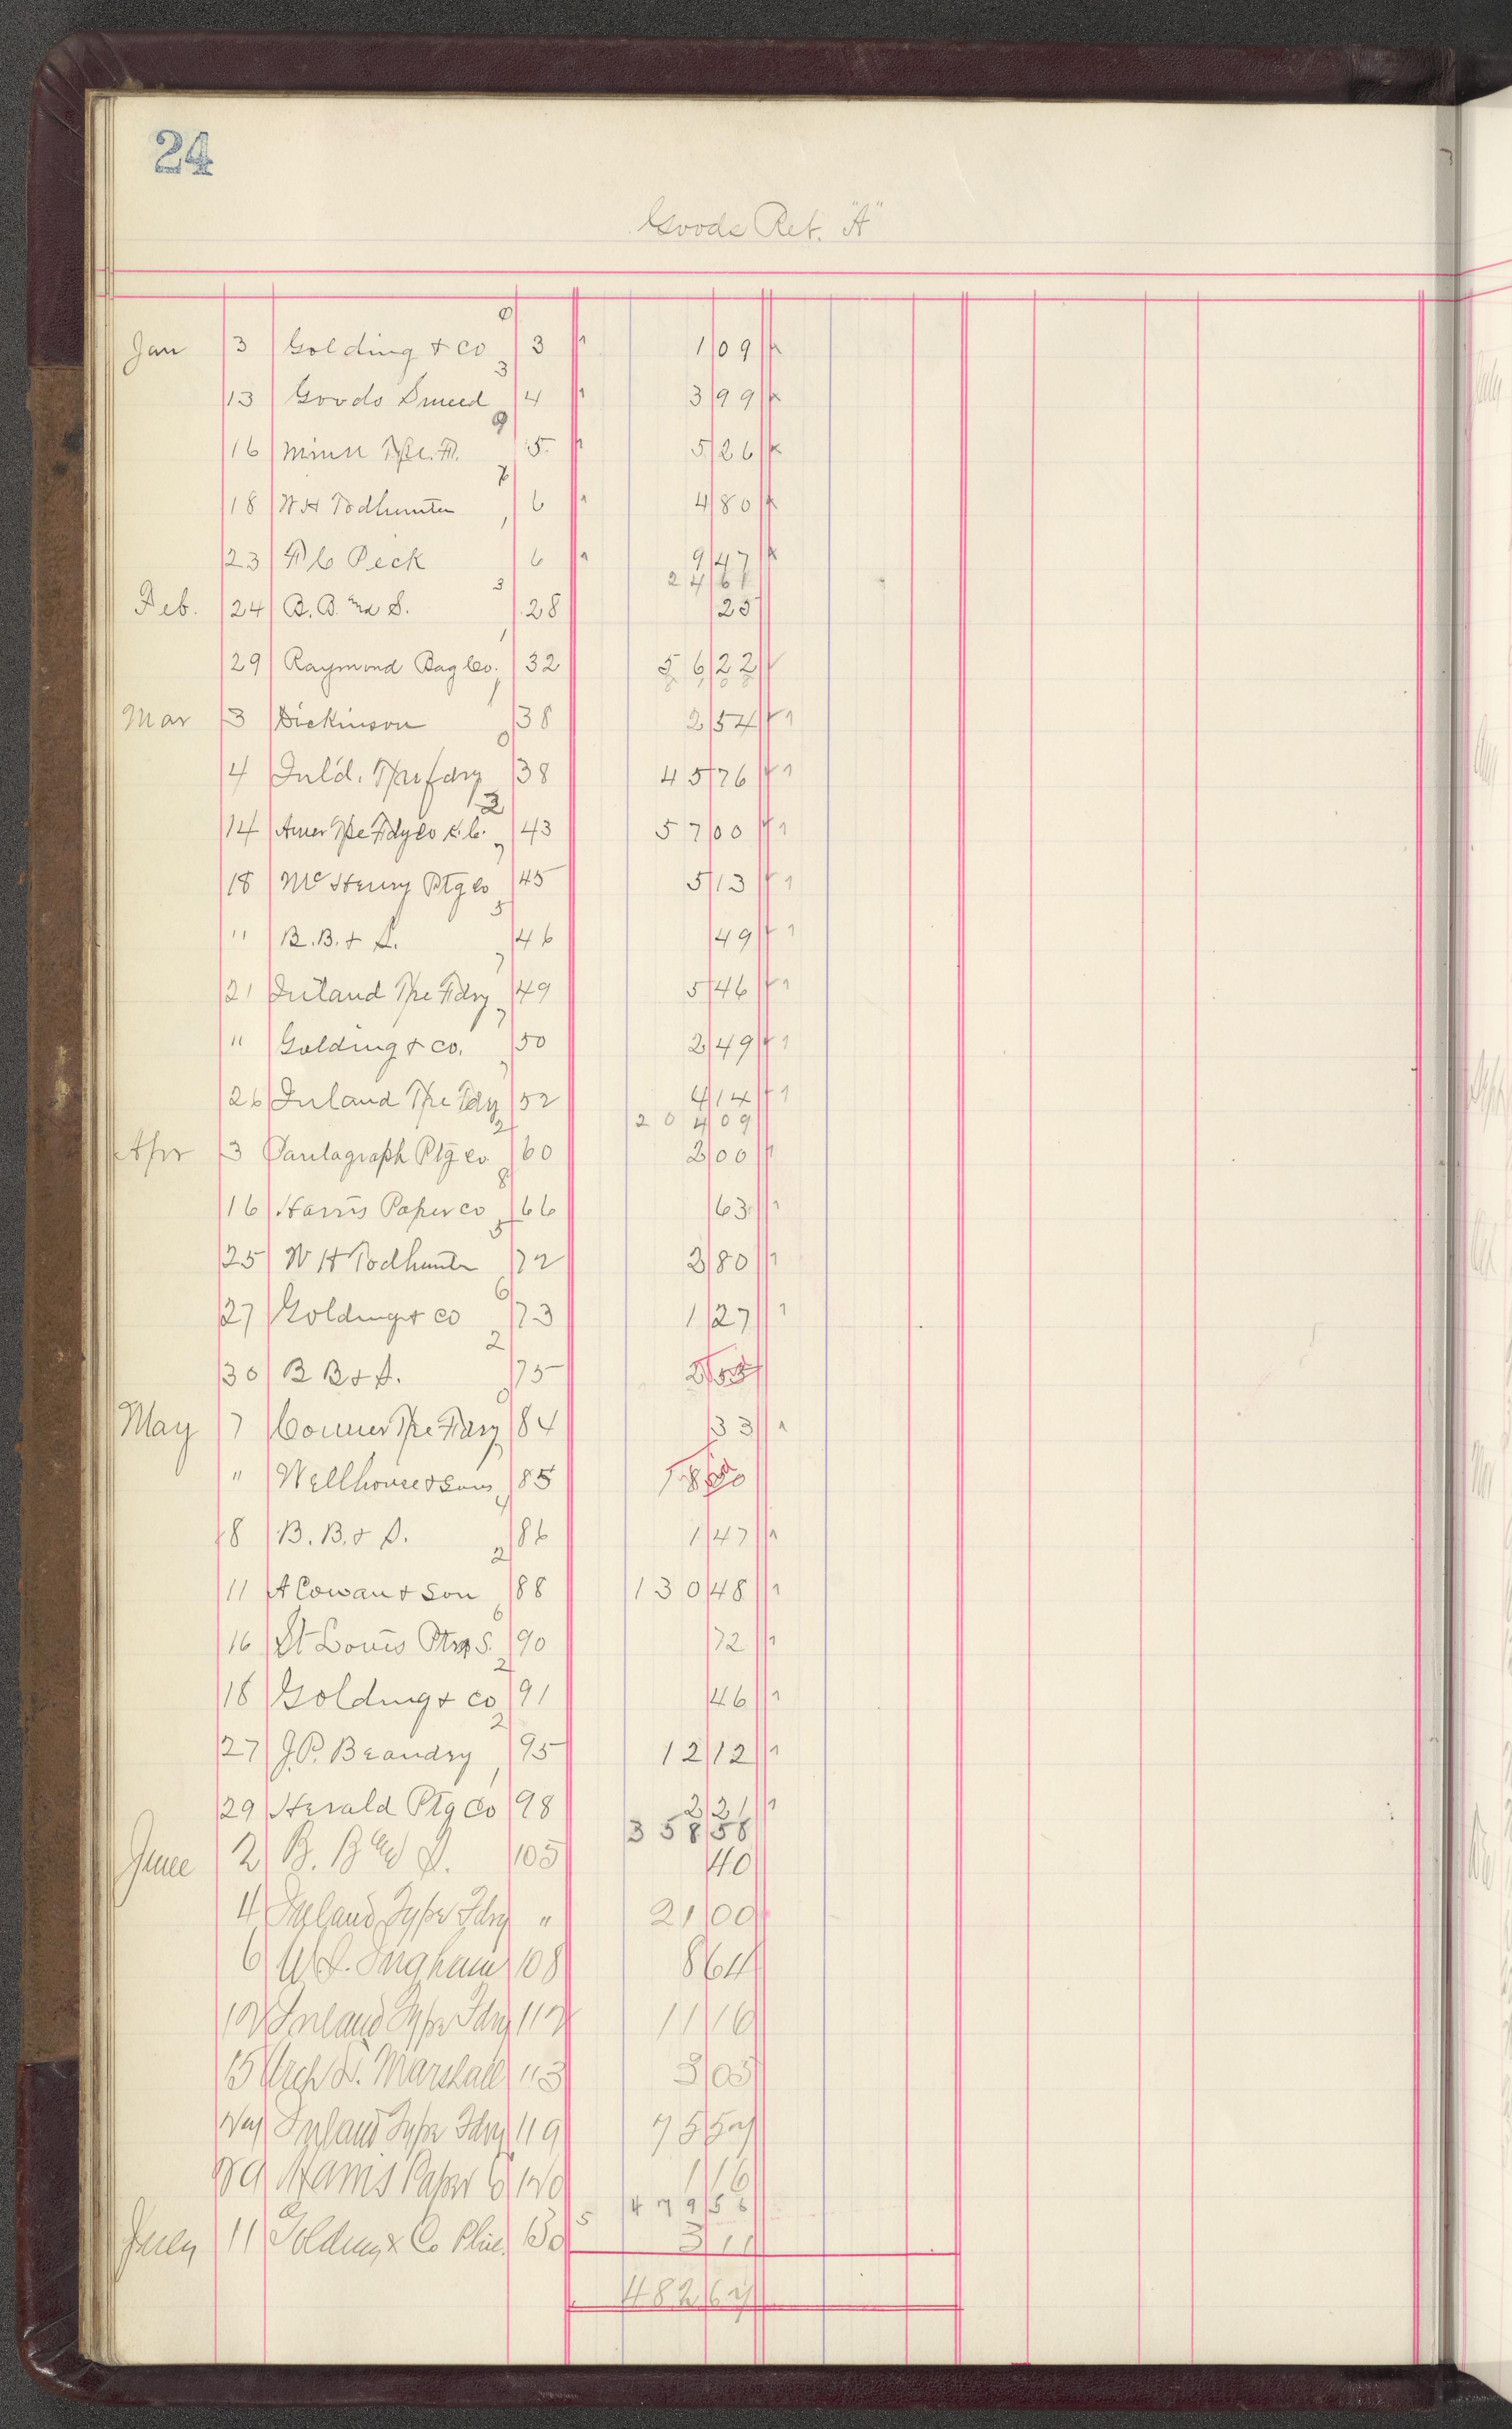 24
Goods Ret. "A"
Jan 3 Golding & Co 3 1 09
13 Goods Smeed 4 3 99
16 Minn Tpe. F. 5 5 26
18 W H Todhunter 6 4 80
23 F C Peck 6 9 47
24 61
Feb. 24 B. B. and S. 28 25
29 Raymond Bag Co. 32 56 22
Mar 3 Dickinson 38 2 54
4 Inl'd. Tpe fdry 38 45 76
14 Amer Tpe Fdy Co K.C. 43 57 00
18 Mc Henry Ptg Co 45 5 13
" B.B. & S. 46 49
21 Inland Tpe Fdry 49 5 46
" Golding & Co. 50 2 49
26 Inland Tpe Fdry 52 4 14
204 09
Apr 3 Pantagraph Ptg Co 60 2 00
16 Harris Paper Co 66 63
25 W H Todhunter 72 2 80
27 Golding & Co 73 1 27
30 B B & S. 75
May 7 Conner Tpe Fdry 84 33
" Wellhouse & Sons 85
8 B. B. & S. 86 1 47
11 A Cowan & Son 88 130 48
16 St Louis Ptrs S. 90 72
18 Golding & Co 91 46
27 J.P. Beaudry 95 12 12
29 Herald Ptg Co 98 2 21
358 58
June 2 B. B and S. 105 40
4 Inland Type Fdry " 21 00
6 W. S. Ingham 108 8 64
12 Inland Type Fdry 112 11 16
15 Arch L. Marshall 113 3 05
27 Inland Type Fdry 119 75 57
29 Harris Paper Co 120 1 16
479 56
July 11 Golding & Co Phil. 130 3 11
482 67